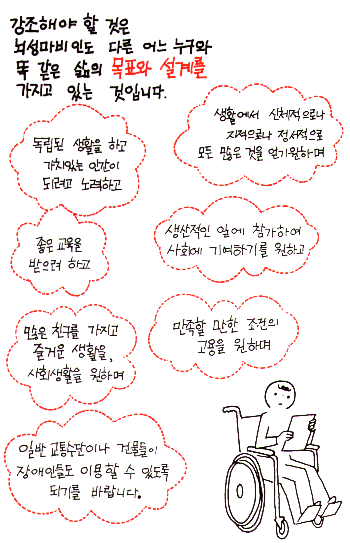 강조해야 할 것은
뇌성마비인도 다른 어느 누구와
똑 같은 삶의 목표와 설계를
가지고 있는 것입니다.
독립된 생활을 하고
가치있는 인간이
되려고 노력하고
생활에서 신체적으로나
지적으로나 정서적으로
모든 많은 것을 얻기원하며
좋은 교육을
받으려 하고
생산적인 일에 참가하여
사회에 기여하기를 원하고
많은 친구를 가지고
즐거운 생활을,
사회생활을 원하며
만족할 만한 조건의
고용을 원하며
일반 교통수단이나 건물들이
장애인들도 이용할 수 있도록
되기를 바랍니다.